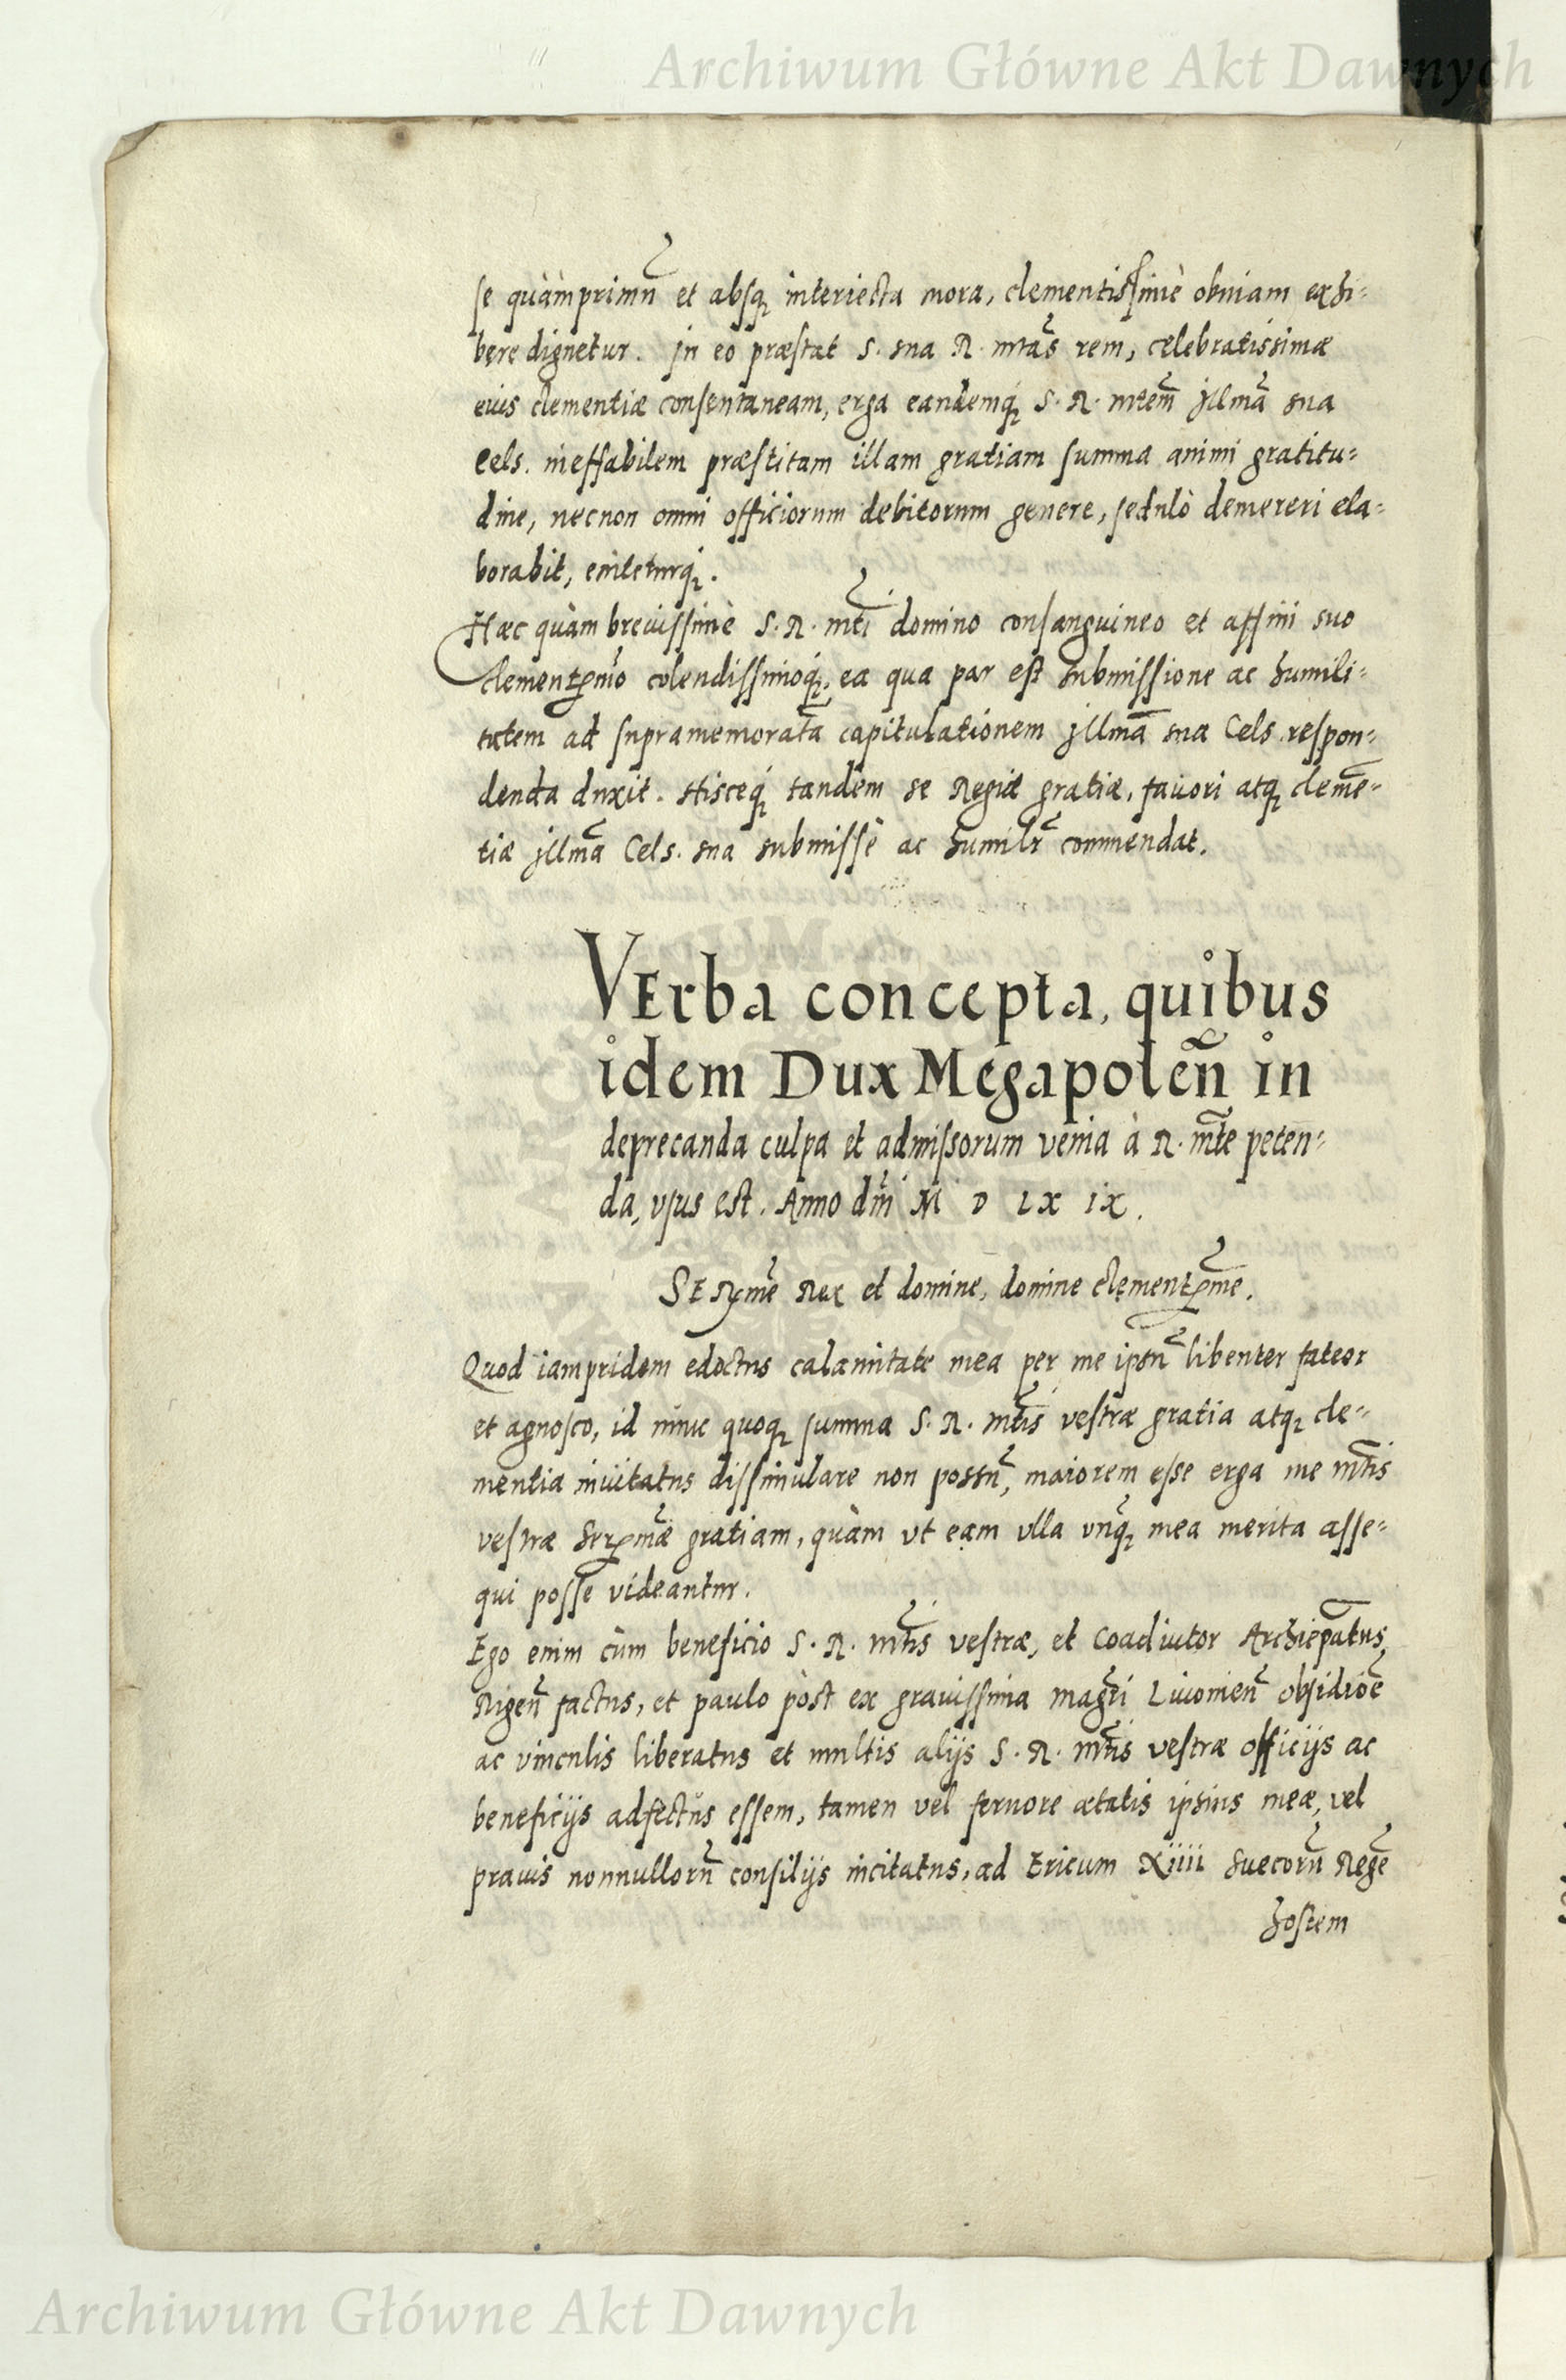 Archiwum Główne Akt Dawnych
se quàmprimũ et absq₃ interiecta mora, clementissimè obuiam exhi=
bere dignetur. In eo præstat S. sua R. mtas rem, celebratissimæ
eius clementiæ consentaneam, erga eandemq₃ S. R. mtem jllma sua
Cels. ineffabilem præstitam illam gratiam summa animi gratitu=
dine, necnon omni officiorum debitorum genere, sedulò demereri ela=
borabit, eniteturq₃.
Hæc quàm breuissimè S. R. mti domino consanguineo et affini suo
clementꝑmo colendissimoq₃, ea qua par est submissione ac humili=
tatem ad supramemoratã capitulationem jllmã sua Cels. respon=
denda duxit. Hisceq₃ tandem se Regiæ gratiæ, fauori atq₃ clemẽ=
tiæ jllma Cels. sua submissè ac humilr commendat.
VErba concepta, quibus
idem Dux Megapoleñ in
deprecanda culpa et admissorum venia à R. mte peten=
da, vsus est. Anno dñi M D LX IX.
SERꝑme Rex et domine, domine clementꝑme.
Quod iampridem edoctus calamitate mea per me ipsũ libenter fateor
et agnosco, id nunc quoq₃ summa S. R. mtis vestræ gratia atq₃ cle=
mentia inuitatus dissimulare non possũ, maiorem esse erga me mtis
vestræ Serꝑmæ gratiam, quàm vt eam vlla vnq₃ mea merita asse=
qui posse videantur.
Ego enim cùm beneficio S. R. mtis vestræ, et Coadiutor Archiepatus
Rigeñ factus, et paulo pòst ex grauissima magri Liuonieñ obsidiõe
ac vinculis liberatus et multis alijs S. R. mtis vestræ officijs ac
beneficijs adfectus essem, tamen vel feruore ætatis ipsius meæ, vel
prauis nonnullorũ consilijs incitatus, ad Ericum XIIII Suecorũ Regẽ
hostem
Archiwum Główne Akt Dawnych